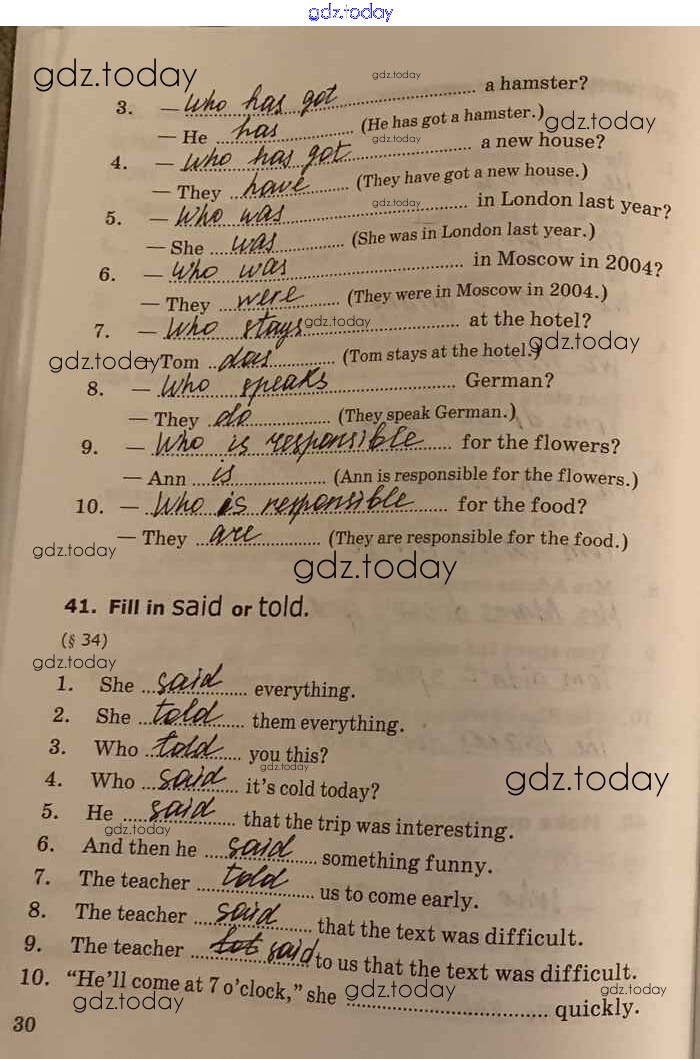 gdz.today
gdz.today gdz.today
3. — Who has got a hamster?
— He has (He has got a hamster.) gdz.today
4. — Who has got gdz.today a new house?
— They have (They have got a new house.)
5. — Who was gdz.today in London last year?
— She was (She was in London last year.)
6. — Who was in Moscow in 2004?
— They were (They were in Moscow in 2004.)
7. — Who stays gdz.today at the hotel?
gdz.today — Tom does (Tom stays at the hotel.) gdz.today
8. — Who speaks German?
— They do (They speak German.)
9. — Who is responsible for the flowers?
— Ann is (Ann is responsible for the flowers.)
10. — Who is responsible for the food?
— They are (They are responsible for the food.)
gdz.today gdz.today
41. Fill in said or told.
(§ 34)
gdz.today
1. She said everything.
2. She told them everything.
3. Who told you this?
gdz.today
4. Who said it's cold today? gdz.today
5. He said that the trip was interesting.
gdz.today
6. And then he said something funny.
7. The teacher told us to come early.
8. The teacher said that the text was difficult.
9. The teacher said to us that the text was difficult.
10. "He'll come at 7 o'clock," she quickly.
gdz.today gdz.today gdz.today
30